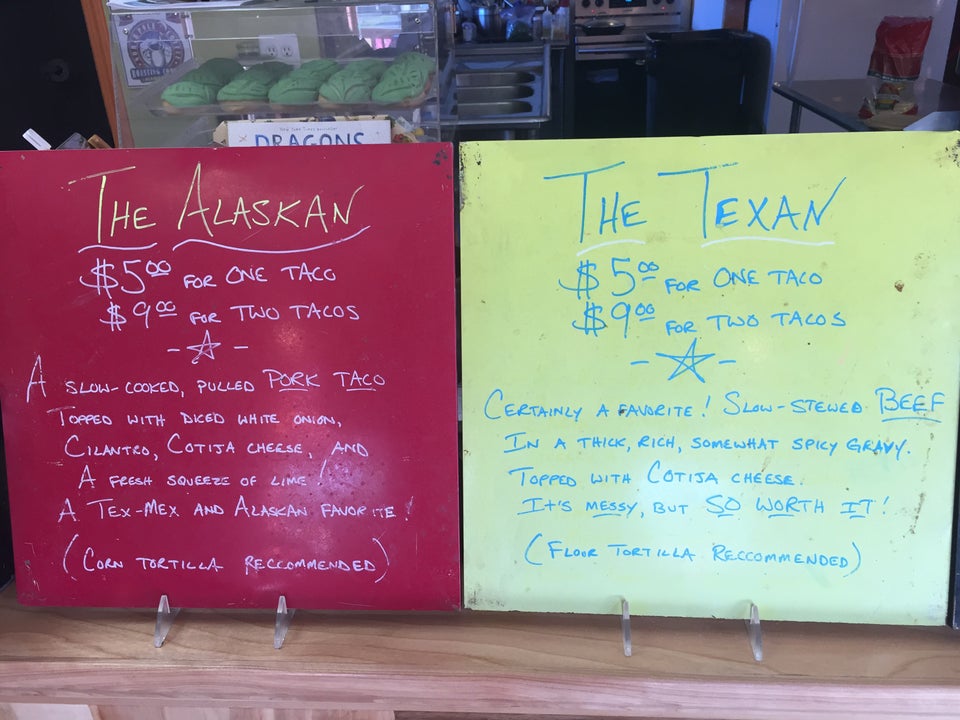 DRAGONS
THE ALASKAN
$5.00 FOR ONE TACO
$9.00 FOR TWO TACOS
A SLOW-COOKED, PULLED PORK TACO
TOPPED WITH DICED WHITE ONION,
CILANTRO, COTIJA CHEESE, AND
A FRESH SQUEEZE OF LIME!
A TEX-MEX AND ALASKAN FAVORITE!
(CORN TORTILLA RECCOMMENDED)
THE TEXAN
$5.00 FOR ONE TACO
$9.00 FOR TWO TACOS
CERTAINLY A FAVORITE! SLOW-STEWED BEEF
IN A THICK, RICH, SOMEWHAT SPICY GRAVY.
TOPPED WITH COTIJA CHEESE.
IT'S MESSY, BUT SO WORTH IT!
(FLOUR TORTILLA RECCOMMENDED)